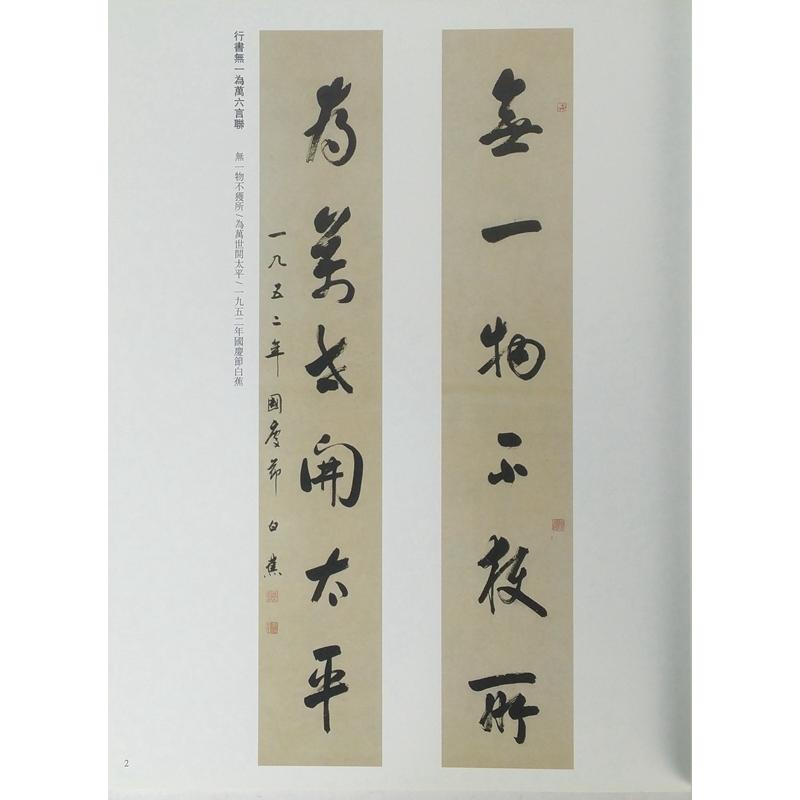 無一物不獲所
為萬世開太平
一九五二年國慶節白蕉
行書無一為萬六言聯
無一物不獲所/為萬世開太平/一九五二年國慶節白蕉
2